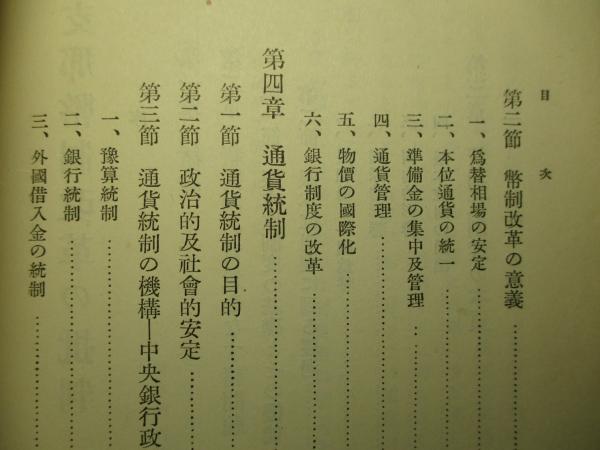 目次
第二節 幣制改革の意義
一、爲替相場の安定
二、本位通貨の統一
三、準備金の集中及管理
四、通貨管理
五、物價の國際化
六、銀行制度の改革
第四章 通貨統制
第一節 通貨統制の目的
第二節 政治的及社會的安定
第三節 通貨統制の機構―中央銀行政
一、豫算統制
二、銀行統制
三、外國借入金の統制